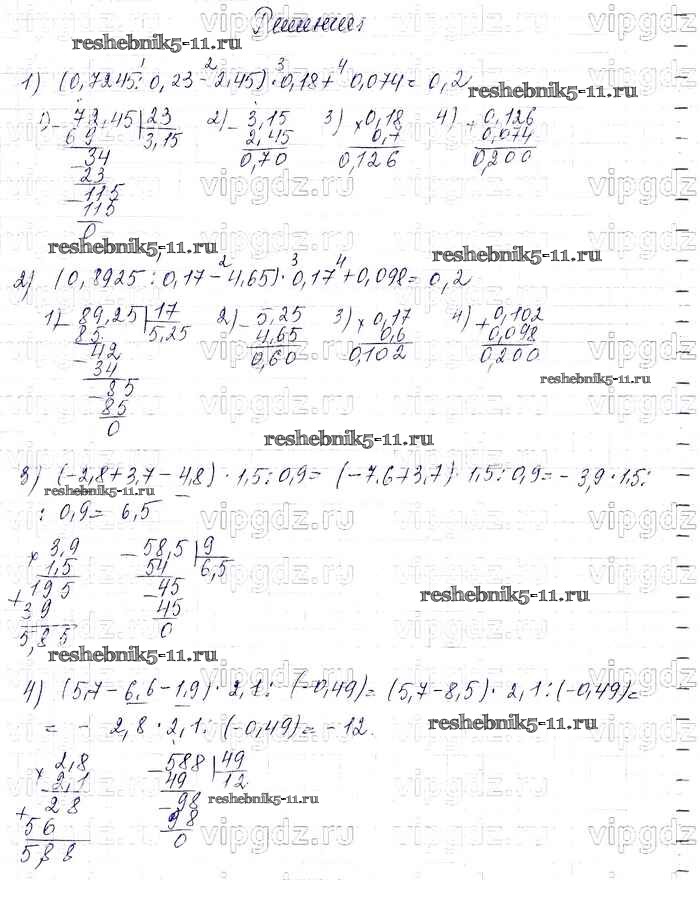 Решение
reshebnik5-11.ru
1) (0,7245 : 0,23 - 2,45) · 0,18 + 0,074 = 0,2
1 2 3 4
1) - 72,45 | 23
69 3,15
- 34
23
- 115
115
0
2) - 3,15
2,45
0,70
3) × 0,18
0,7
0,126
4) + 0,126
0,074
0,200
reshebnik5-11.ru
2) (0,8925 : 0,17 - 4,65) · 0,17 + 0,098 = 0,2
2 3 4
1) - 89,25 | 17
85 5,25
- 42
34
- 85
85
0
2) - 5,25
4,65
0,60
3) × 0,17
0,6
0,102
4) + 0,102
0,098
0,200
reshebnik5-11.ru
reshebnik5-11.ru
3) (-2,8 + 3,7 - 4,8) · 1,5 : 0,9 = (-7,6 + 3,7) · 1,5 : 0,9 = - 3,9 · 1,5 :
reshebnik5-11.ru
: 0,9 = 6,5
× 3,9
1,5
+ 195
39
5,85
- 58,5 | 9
54 6,5
- 45
45
0
reshebnik5-11.ru
reshebnik5-11.ru
4) (5,7 - 6,6 - 1,9) · 2,1 : (-0,49) = (5,7 - 8,5) · 2,1 : (-0,49) =
= - 2,8 · 2,1 : (-0,49) = - 12.
reshebnik5-11.ru
× 2,8
2,1
+ 28
56
5,88
- 588 | 49
49 12
- 98
98
0
reshebnik5-11.ru
vipgdz.ru